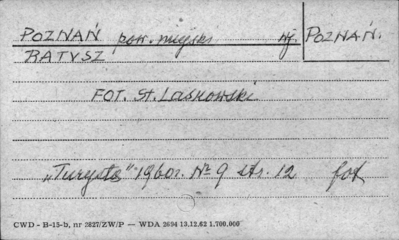 POZNAŃ pow. miejski wj. POZNAŃ.
RATUSZ
FOT. St. Laskowski
„Turysta" 1960r. Nr 9 str. 12 fot
CWD - H-15-b, nr 2827/ZW/P — WDA 2694 13.12.62 1.700.000